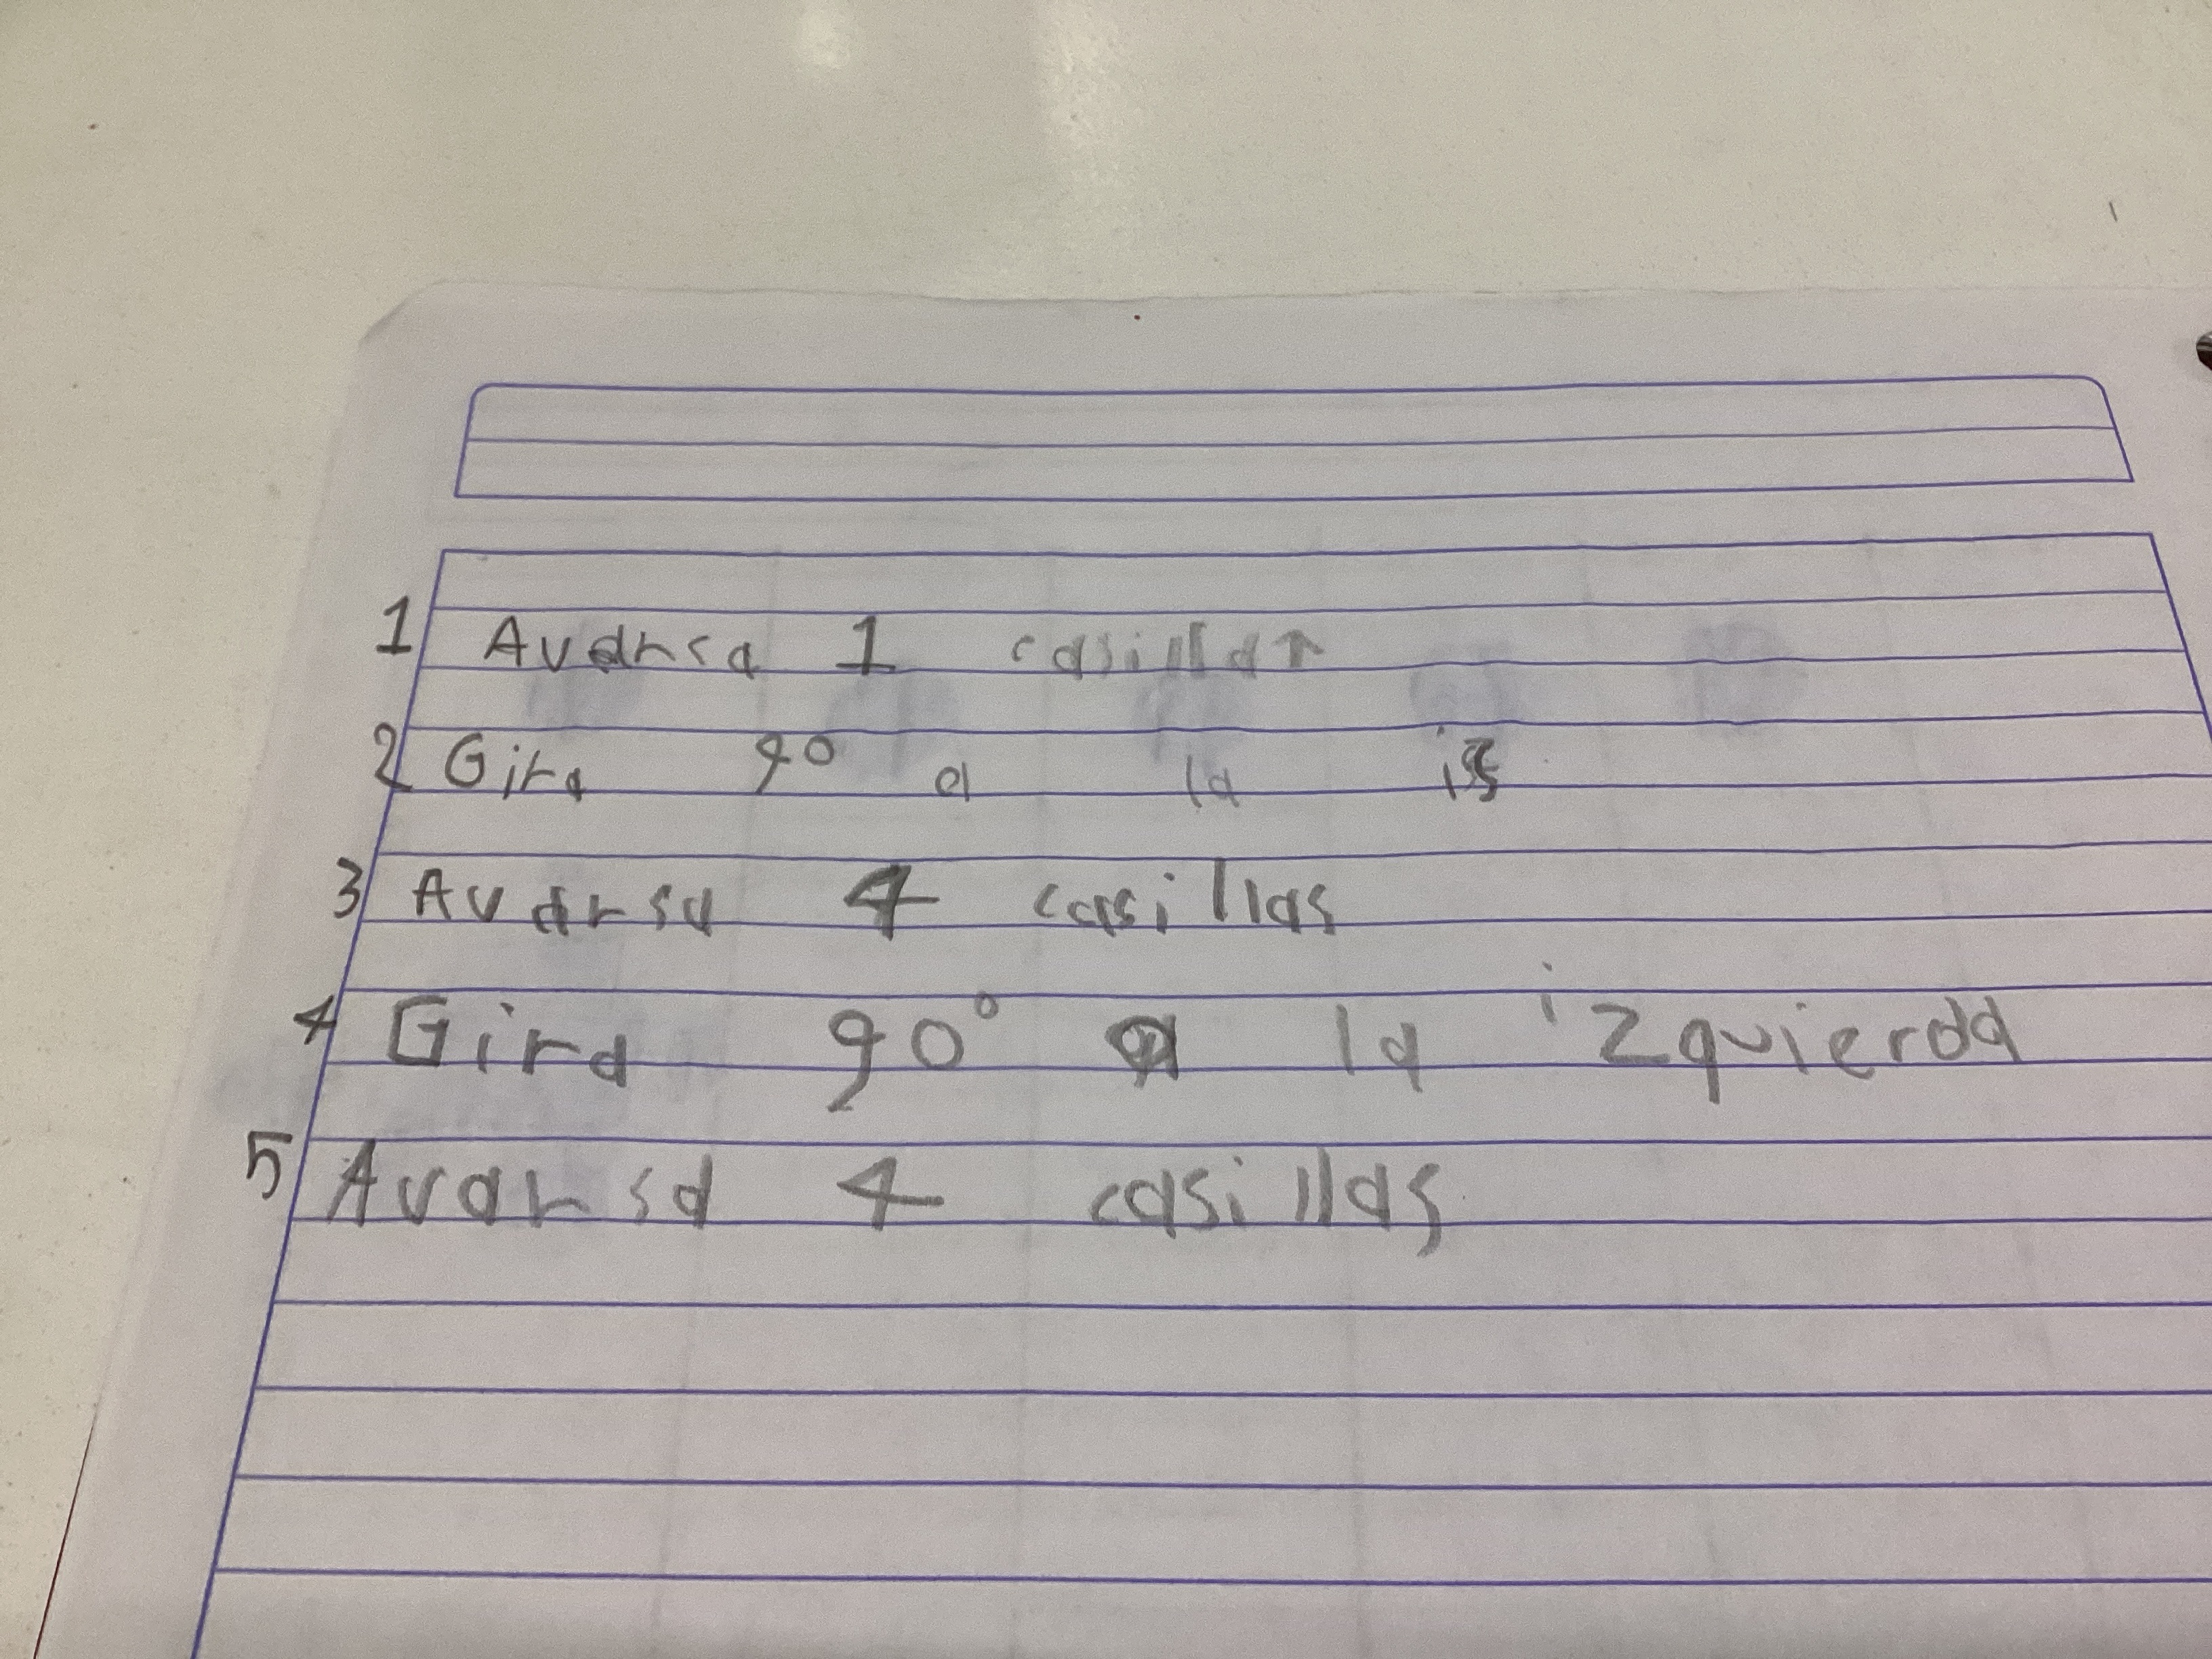 1 Avansa 1 casilla↑
2 Gira 90 a la iz
3 Avansa 4 casillas
4 Gira 90° a la izquierda
5 Avansa 4 casillas